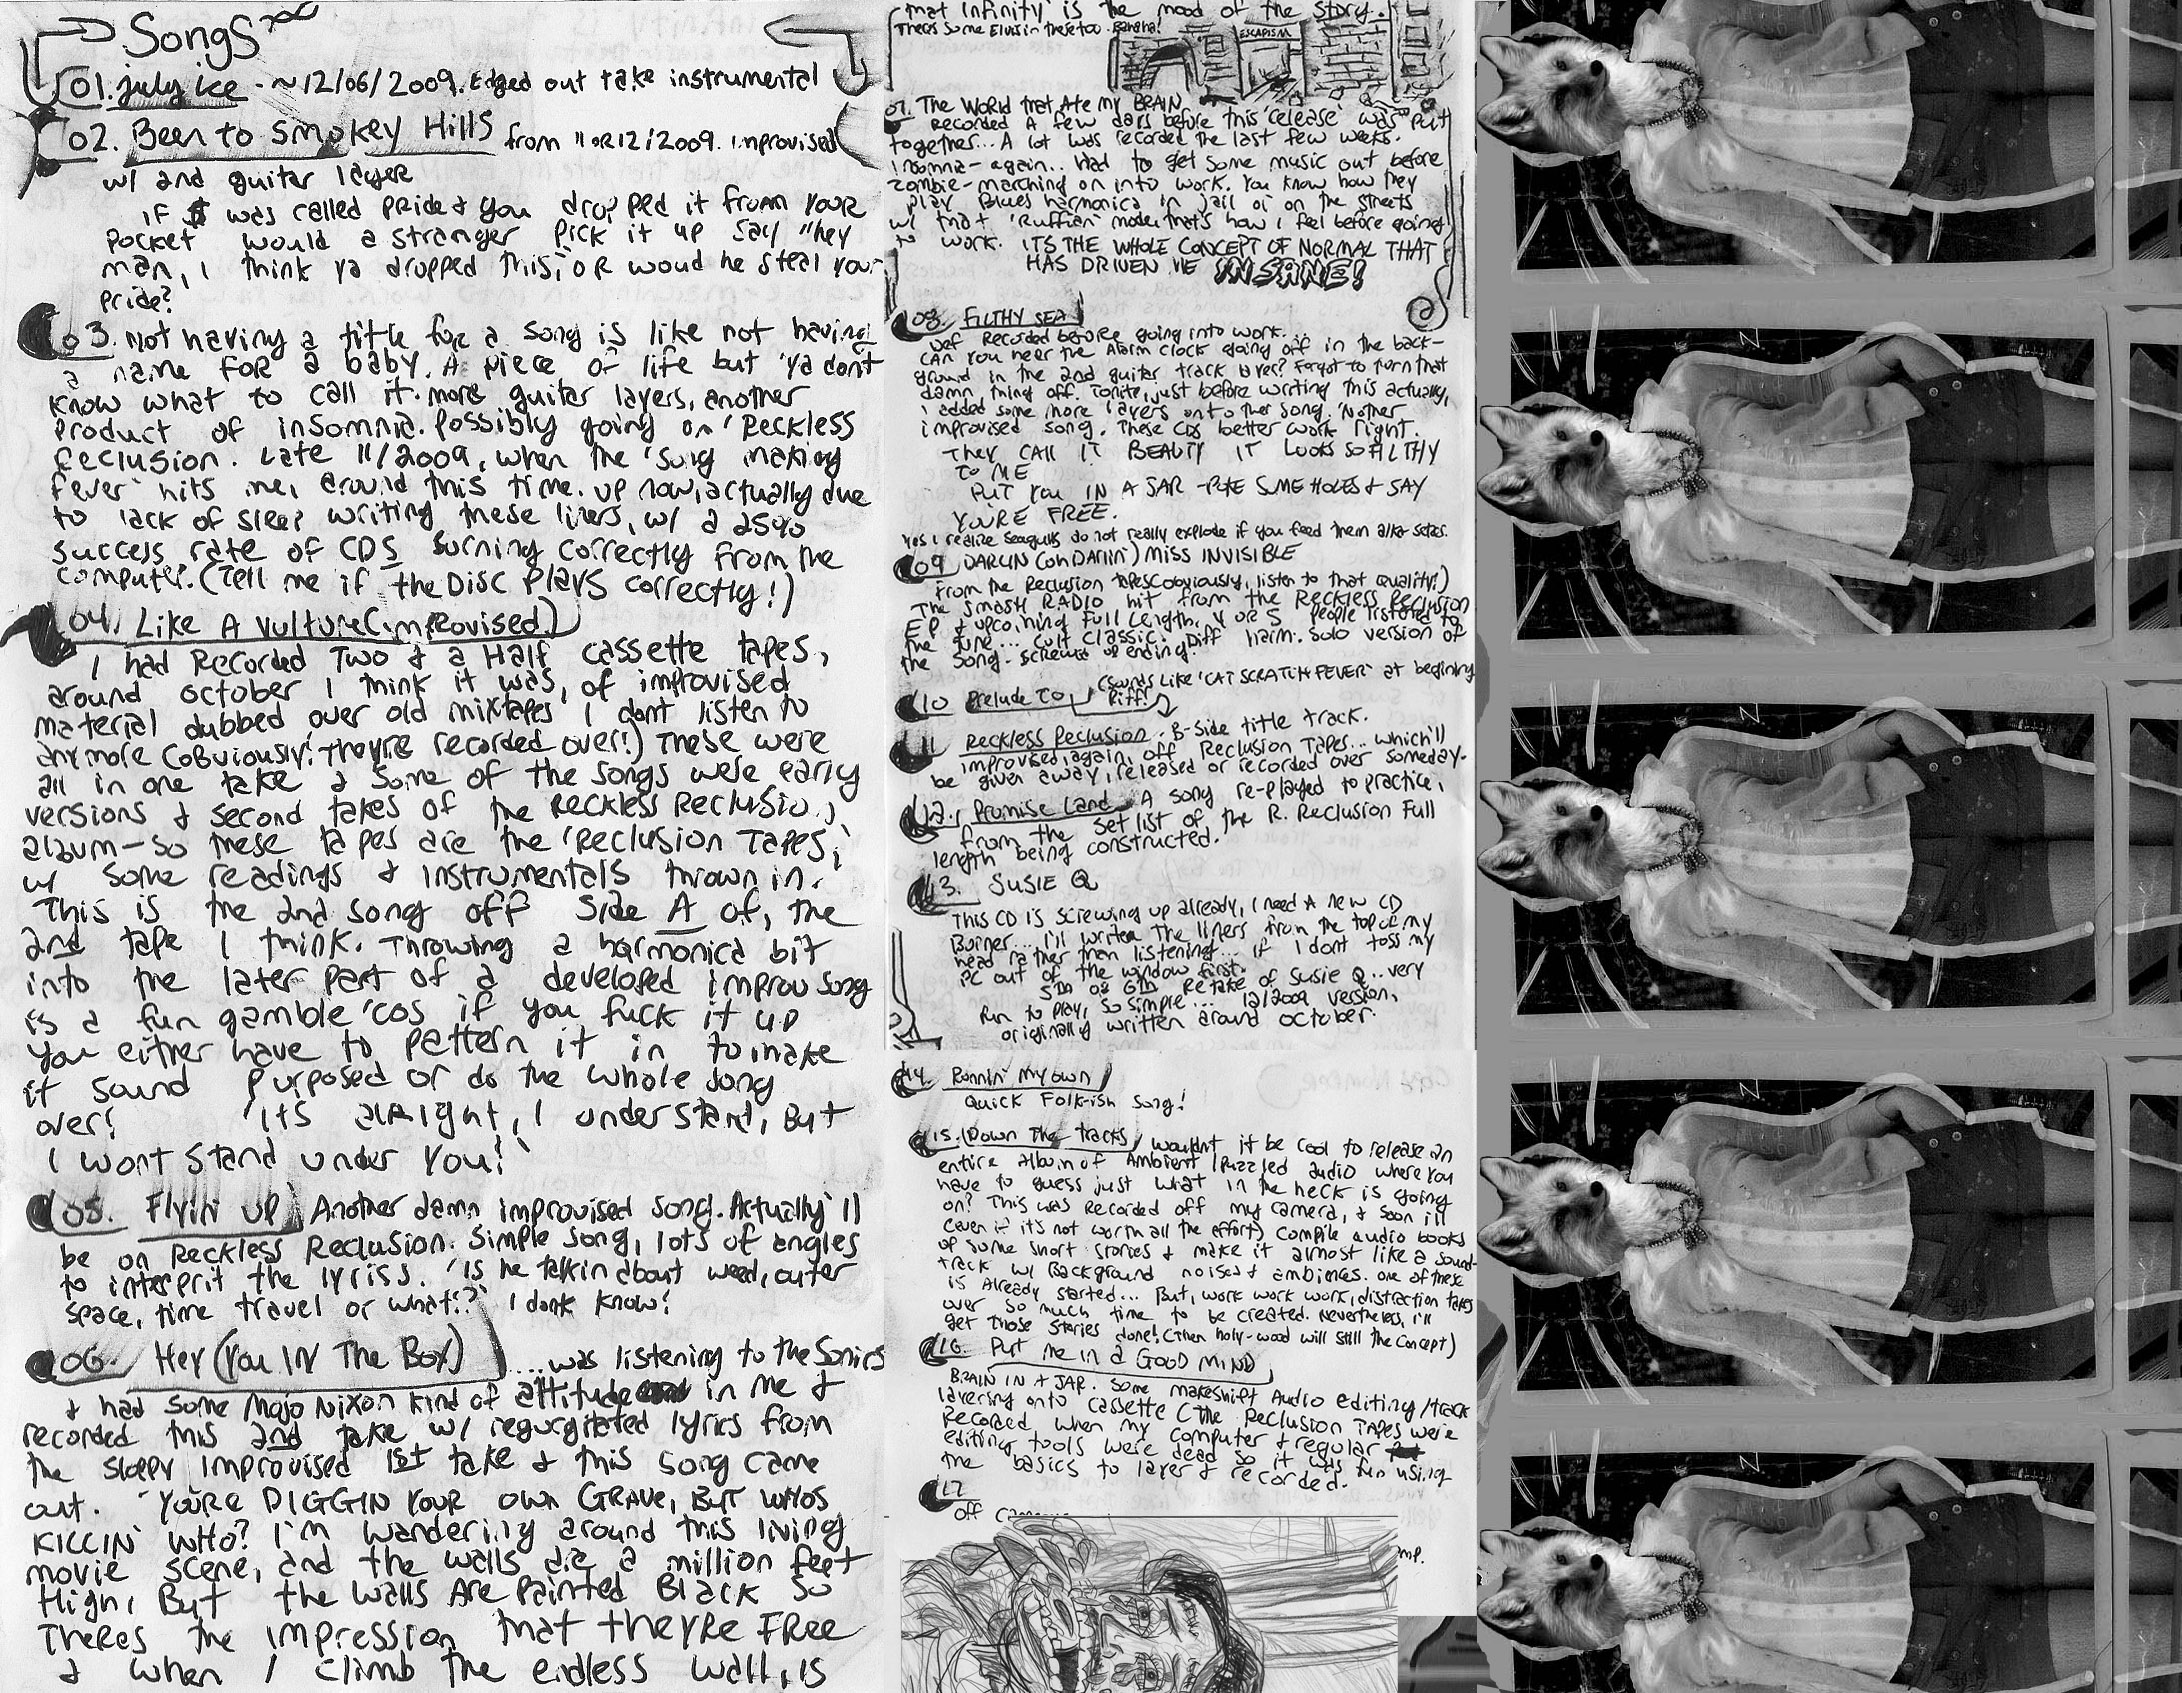 Songs
01. july ice - ~12/06/2009. Edged out take instrumental
02. Been to Smokey Hills from 11 OR 12/2009. improvised
w/ 2nd guitar layer
IF $ was called PRide & you dropped it from YOUR
pocket would a stranger pick it up say "hey
man, i think ya dropped this, OR would he steal your
pride?
03. Not having a title for a song is like not having
a name FOR a baby. A piece of life but 'ya don't
know what to call it. more guitar layers, another
product of insomnia. Possibly going on 'Reckless
Reclusion. Late 11/2009, when the 'song making
fever' hits me, around this time. up now, actually due
to lack of sleep writing these liners, w/ a 25%
success rate of CDS burning correctly from the
computer. (Tell me if the Disc PLAYS correctly!)
04. Like A Vulture (improvised)
I had Recorded Two & a Half cassette tapes,
around october I think it was, of improvised
material dubbed over old mixtapes I dont listen to
anymore (obviously! They're recorded over!) These were
all in one take & some of the songs were early
versions & second takes of the RECKLESS RECLUSION
album - so these tapes are the 'RECLUSION TAPES,'
w/ some readings & instrumentals thrown in.
This is the 2nd song off Side A of, the
2nd tape I think. Throwing a harmonica bit
into the later part of a developed improv song
is a fun gamble 'cos if you fuck it up
you either have to pattern it in to make
it sound purposed or do the whole song
over! 'its alright, I understand, But
I wont stand under You!'
05. Flyin' Up Another damn improvised song. Actually'll
be on Reckless Reclusion. Simple song, lots of angles
to interprit the lyriss. 'is he talkin about weed, outer
space, time travel or what!?' I donk know!
06. Hey (You IN The Box) ....was listening to the Sonics
& had some Mojo Nixon kind of attitude in me &
recorded this 2nd take w/ regurgitated lyrics from
the sloppy improvised 1st take & this song came
out. 'YOU'RE DIGGIN YOUR OWN GRAVE, BUT WHOS
KILLIN' WHO? I'm wandering around this living
movie scene, and the walls are a million feet
High, But the walls Are Painted Black so
Theres the impression that they're FREE
& when I climb the endless wall, is
that infinity' is the mood of the story.
Theres some Elvis in there too. Banana!
ESCAPISM
07. The World that Ate my BRAIN
Recorded A few days before this 'release' was put
together... A lot was recorded the last few weeks.
Insomnia - again.. had to get some music out before
zombie-marching on into work. You know how they
play Blues harmonica in jail or on the streets
w/ that 'Ruffian' mode. that's how i feel before going
to work. ITS THE WHOLE CONCEPT OF NORMAL THAT
HAS DRIVEN ME INSANE!
08. FILTHY SEA
Def Recorded before going into work...
CAN You hear the Alarm clock going off in the back-
ground in the 2nd guitar track layer? Forgot to turn that
damn thing off. Tonite, just before writing this actually,
i added some more layers onto ther song. 'Nother
improvised song. These CDs better work right.
THEY CALL IT BEAUTY IT LOOKS SO FILTHY
TO ME
PUT YOU IN A JAR - POKE SUME HOLES & SAY
YOU'RE FREE.
Yes I realize seagulls do not really explode if you feed them alka-seltzer.
09 DARLIN (OH DARLIN') MISS INVISIBLE
From the Reclusion tapes (obviously, listen to that quality!)
The SMASH RADIO hit from the Reckless Reclusion
E.P & upcoming full length, 4 OR 5 people listened to
the tune... cult classic. Diff harm. solo version of
the song. screwed up ending.
(Sounds like 'CAT SCRATCH FEVER' at beginning
10 Prelude To Riff!
11 Reckless Reclusion. B-side title track.
improvised, again, off Reclusion Tapes... which'll
be given away, released or recorded over someday.
12. Promise Land A song re-played to practice,
From the set list of the R. Reclusion Full
length being constructed.
13. SUSIE Q
This CD is screwing up already, I need A new CD
Burner... i'll write The liners from the top of my
head rather than listening... if I dont toss my
PC out of the window first.
5th or 6th Retake of Susie Q.. very
Fun to play, so simple... 12/2009 version,
originally written around october.
14. Runnin' My own
Quick Folk-ish song!
15. Down The tracks Wouldn't it be cool to release an
entire album of Ambient / puzzled audio where you
have to guess just what in the heck is going
on? This was Recorded off my camera, & soon ill
(even if it's not worth all the effort) compile audio books
of some short stories & make it almost like a sound-
track w/ Background noises & ambiences. one of these
is Already started... But, work work work, distraction takes
over so much time to be created. Nevertheless, i'll
get those stories done! (Then holy-wood will still the concept)
16. Put me in a GOOD MIND
BRAIN IN A JAR. Some makeshift Audio editing / track
layering onto cassette (The Reclusion Tapes were
Recorded when my computer & regular
editing tools were dead so it was fun using
the basics to layer & recorded.
17
off